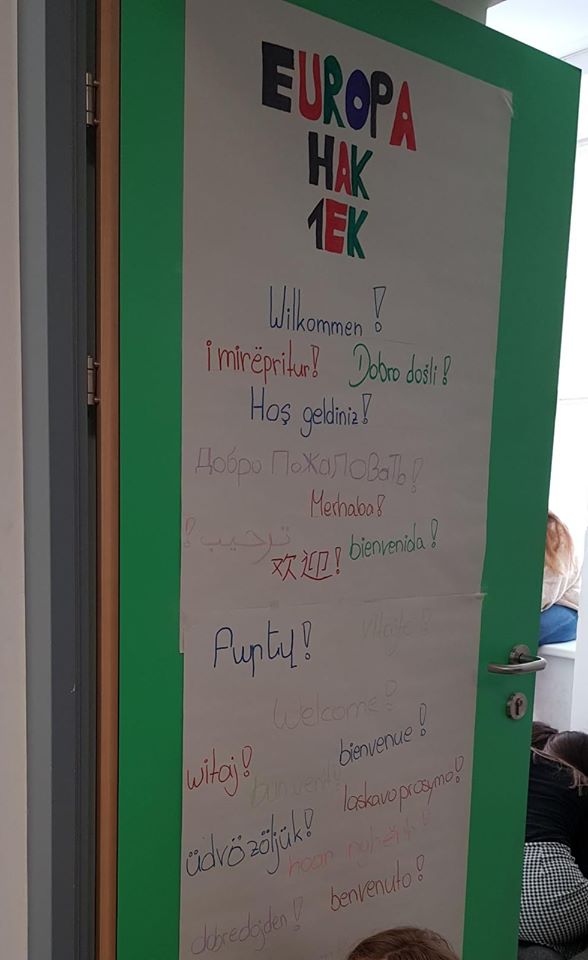 EUROPA
HAK
1EK
Wilkommen!
i mirëpritur! Dobro došli!
Hoş geldiniz!
Добро Пожаловать!
Merhaba!
ترحيب!
欢迎! bienvenida!
vitajte!
Welcome!
witaj! bienvenue!
bun venit! laskavo prosymo!
üdvözöljük!
benvenuto!
dobredojden!